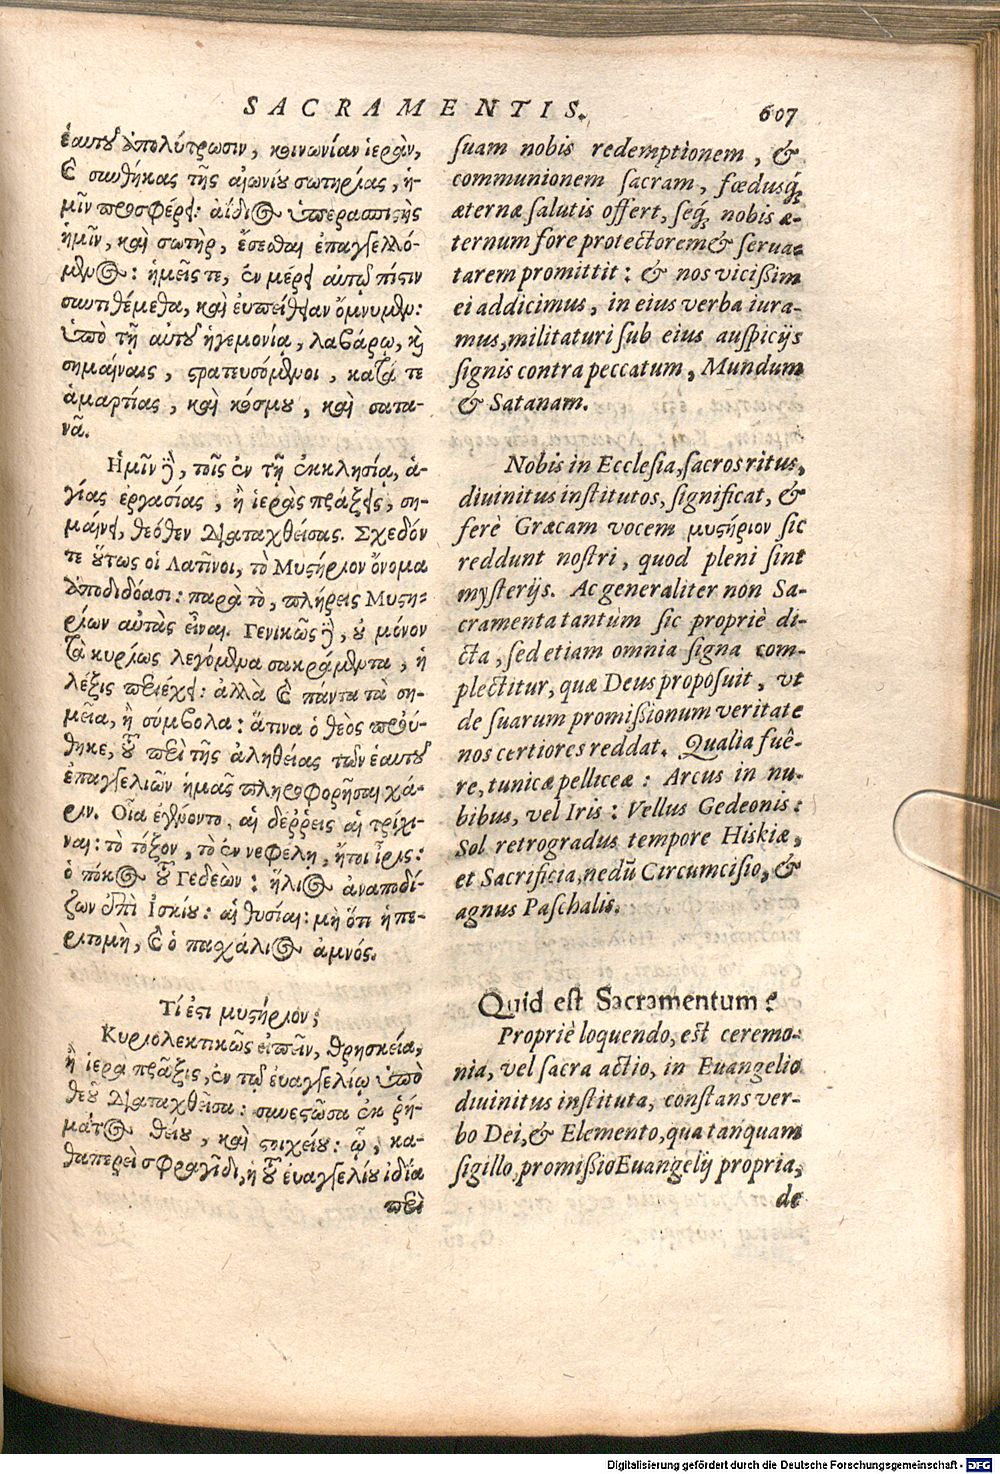 SACRAMENTIS. 607
ἑαυτοῦ ἀπολύτρωσιν, κοινωνίαν ἱερὰν,
καὶ συνθήκας τῆς αἰωνίου σωτηρίας, ἡ-
μῖν προσφέρει: ἀΐδιος ὑπερασπιστὴς
ἡμῖν, καὶ σωτὴρ, ἔσεσθαι ἐπαγγελλό-
μενος: ἡμεῖς τε, ἐν μέρει αὐτῷ πίστιν
συντιθέμεθα, καὶ εὐπείθειαν ὄμνυμεν:
ὑπὸ τῇ αὐτοῦ ἡγεμονίᾳ, λαβάρῳ, καὶ
σημαίναις, στρατευσόμενοι, κατά τε
ἁμαρτίας, καὶ κόσμου, καὶ σατα-
νᾶ.
Ἡμῖν δὲ, τοῖς ἐν τῇ ἐκκλησίᾳ, ἁ-
γίας ἐργασίας, ἢ ἱερὰς πράξεις, ση-
μαίνει, θεόθεν διαταχθείσας. Σχεδόν
τε οὕτως οἱ Λατῖνοι, τὸ Μυστήριον ὄνομα
ἀποδιδόασι: παρὰ τὸ, πλήρεις Μυστη-
ρίων αὐτὰς εἶναι. Γενικῶς δὲ, οὐ μόνον
τὰ κυρίως λεγόμενα σακράμεντα, ἡ
λέξις περιέχει: ἀλλὰ καὶ πάντα τὰ ση-
μεῖα, ἢ σύμβολα: ἅτινα ὁ θεὸς πρού-
θηκε, τοῦ περὶ τῆς ἀληθείας τῶν ἑαυτοῦ
ἐπαγγελιῶν ἡμᾶς πληροφορῆσαι χά-
ριν. Οἷα ἐγένοντο, αἱ δέρρεις αἱ τρίχι-
ναι: τὸ τόξον, τὸ ἐν νεφέλῃ, ἤτοι ἶρις:
ὁ πόκος τοῦ Γεδεὼν: ἥλιος ἀναποδί-
ζων ἐπὶ Ἰσκίου: αἱ θυσίαι: μὴ ὅτι ἡ πε-
ριτομὴ, καὶ ὁ πασχάλιος ἀμνός.
Τί ἐστι μυστήριον;
Κυριολεκτικῶς εἰπεῖν, θρησκεία,
ἢ ἱερὰ πρᾶξις, ἐν τῷ εὐαγγελίῳ ὑπὸ
θεοῦ διαταχθεῖσα: συνεστῶσα ἐκ ῥή-
ματος θείου, καὶ στοιχείου: ᾧ, κα-
θαπερεὶ σφραγῖδι, ἡ τοῦ εὐαγγελίου ἰδία
περὶ
suam nobis redemptionem, &
communionem sacram, fœdusq́;
æternæ salutis offert, seq́; nobis æ-
ternum fore protectorem & serua-
tarem promittit: & nos vicißim
ei addicimus, in eius verba iura-
mus, militaturi sub eius auspicijs
signis contra peccatum, Mundum
& Satanam.
Nobis in Ecclesia, sacros ritus,
diuinitus institutos, significat, &
ferè Græcam vocem μυστήριον sic
reddunt nostri, quod pleni sint
mysterijs. Ac generaliter non Sa-
cramenta tantùm sic propriè di-
cta, sed etiam omnia signa com-
plectitur, quæ Deus proposuit, vt
de suarum promißionum veritate
nos certiores reddat. Qualia fuê-
re, tunicæ pelliceæ: Arcus in nu-
bibus, vel Iris: Vellus Gedeonis:
Sol retrogradus tempore Hiskiæ,
et Sacrificia, nedū Circumcisio, &
agnus Paschalis.
Quid est Sacramentum?
Propriè loquendo, est ceremo-
nia, vel sacra actio, in Euangelio
diuinitus instituta, constans ver-
bo Dei, & Elemento, qua tanquam
sigillo, promißio Euangelij propria,
de
Digitalisierung gefördert durch die Deutsche Forschungsgemeinschaft - DFG